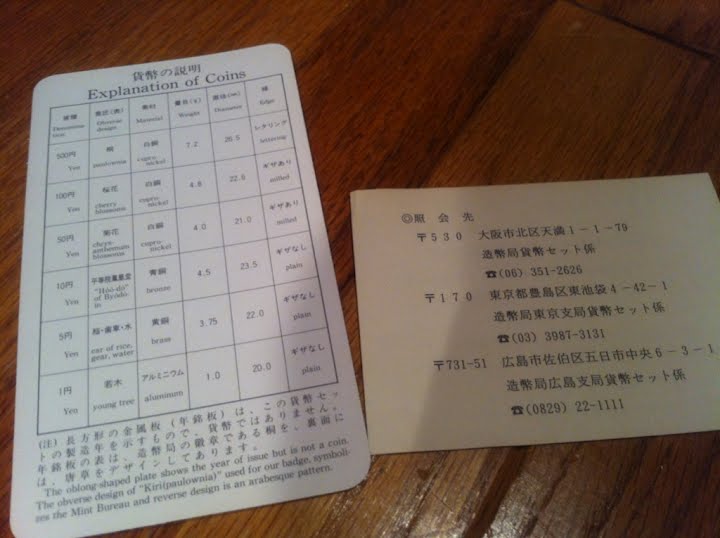 貨幣の説明
Explanation of Coins
種類 Denomination 表図(表) Obverse design 素材 Material 量目(g) Weight 直径(㎜) Diameter 縁 Edge
500円 Yen 桐 paulownia 白銅 cupro-nickel 7.2 26.5 レタリング lettering
100円 Yen 桜花 cherry blossoms 白銅 cupro-nickel 4.8 22.6 ギザあり milled
50円 Yen 菊花 chrysanthemum blossoms 白銅 cupro-nickel 4.0 21.0 ギザあり milled
10円 Yen 平等院鳳凰堂 "Hōō-dō" of Byōdō-in 青銅 bronze 4.5 23.5 ギザなし plain
5円 Yen 稲・歯車・水 ear of rice, gear, water 黄銅 brass 3.75 22.0 ギザなし plain
1円 Yen 若木 young tree アルミニウム aluminum 1.0 20.0 ギザなし plain
(注) 長方形の金属板(年銘板)は、この貨幣セッ
トの製造年を示すもので、貨幣ではありません。
年銘板の表は、造幣局の徽章である桐を、裏面に
は、唐草をデザインしてあります。
The oblong-shaped plate shows the year of issue but is not a coin.
The obverse design of "Kiri(paulownia)" used for our badge, symboli-
zes the Mint Bureau and reverse design is an arabesque pattern.
◎照会先
〒530 大阪市北区天満1-1-79
造幣局貨幣セット係
☎(06) 351-2626
〒170 東京都豊島区東池袋4-42-1
造幣局東京支局貨幣セット係
☎(03) 3987-3131
〒731-51 広島市佐伯区五日市中央6-3-1
造幣局広島支局貨幣セット係
☎(0829) 22-1111